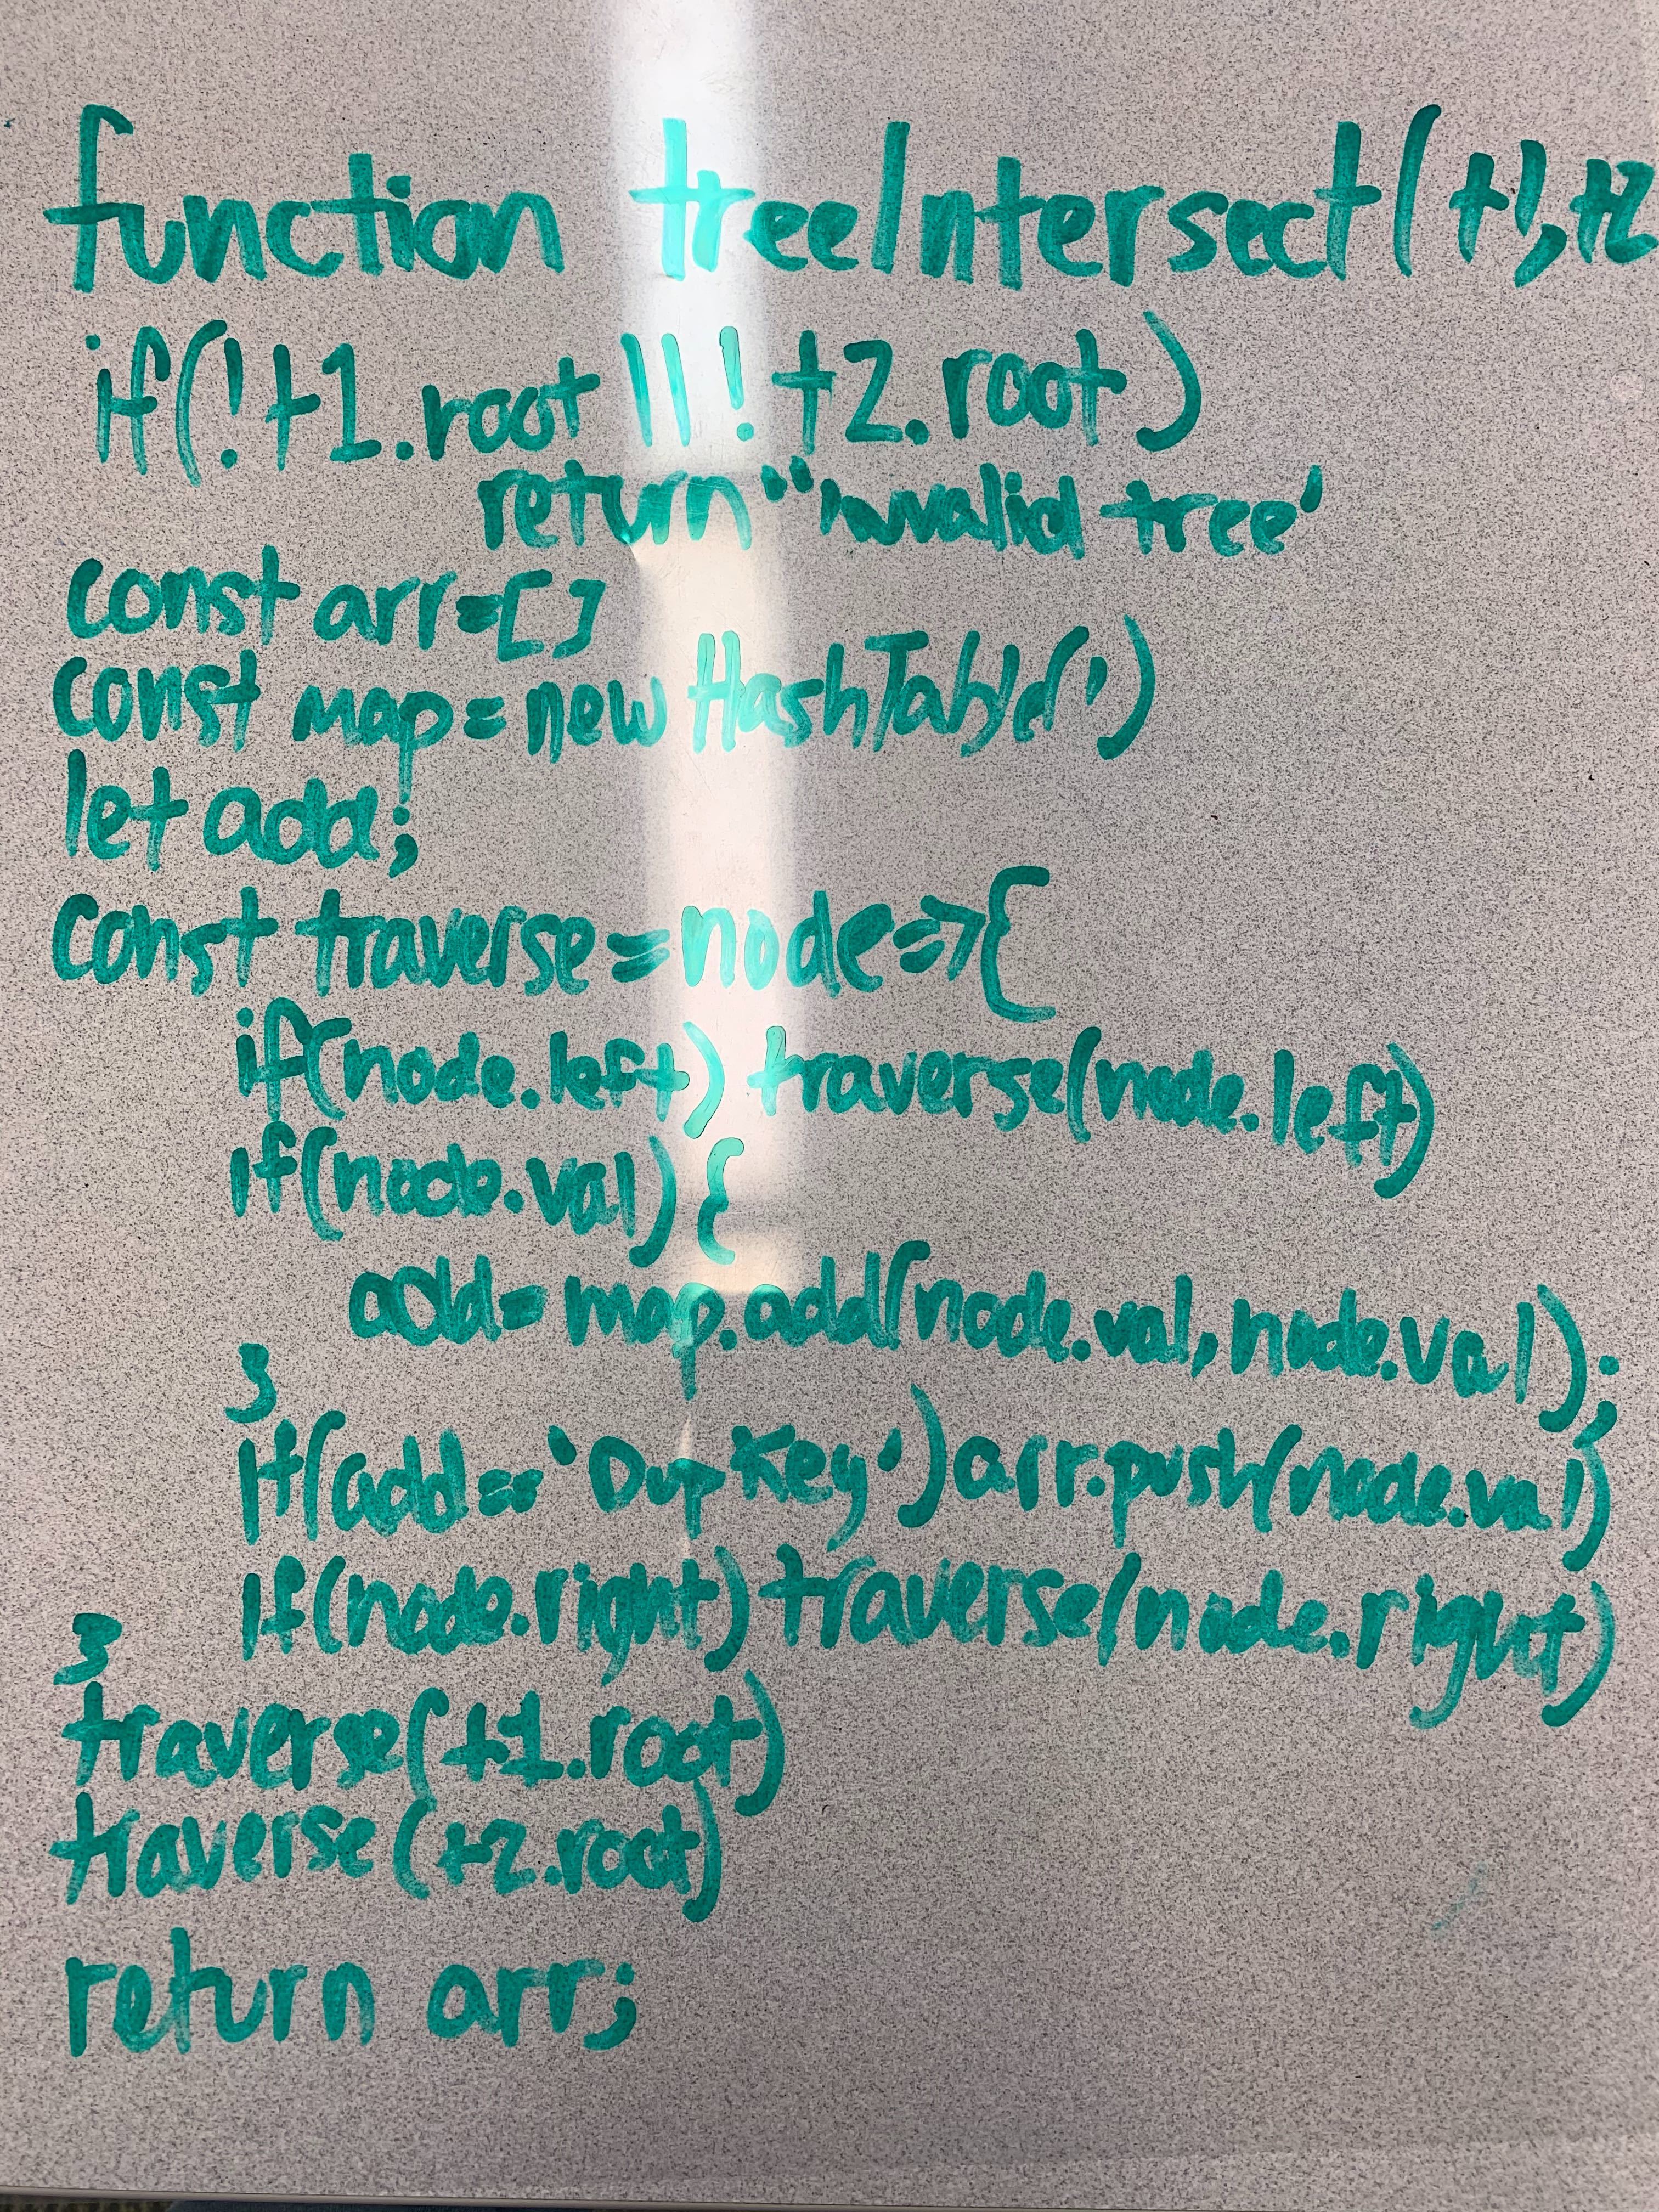 function treeIntersect(t1,t2
if(!t1.root || !t2.root)
return "invalid tree'
const arr=[]
const map=new HashTable(')
let add;
const traverse=node=>{
if(node.left) traverse(node.left)
if(node.val) {
add=map.add(node.val,node.val);
}
if(add=='Dup Key')arr.push(node.val)
if(node.right)traverse(node.right)
}
traverse(t1.root)
traverse(t2.root)
return arr;